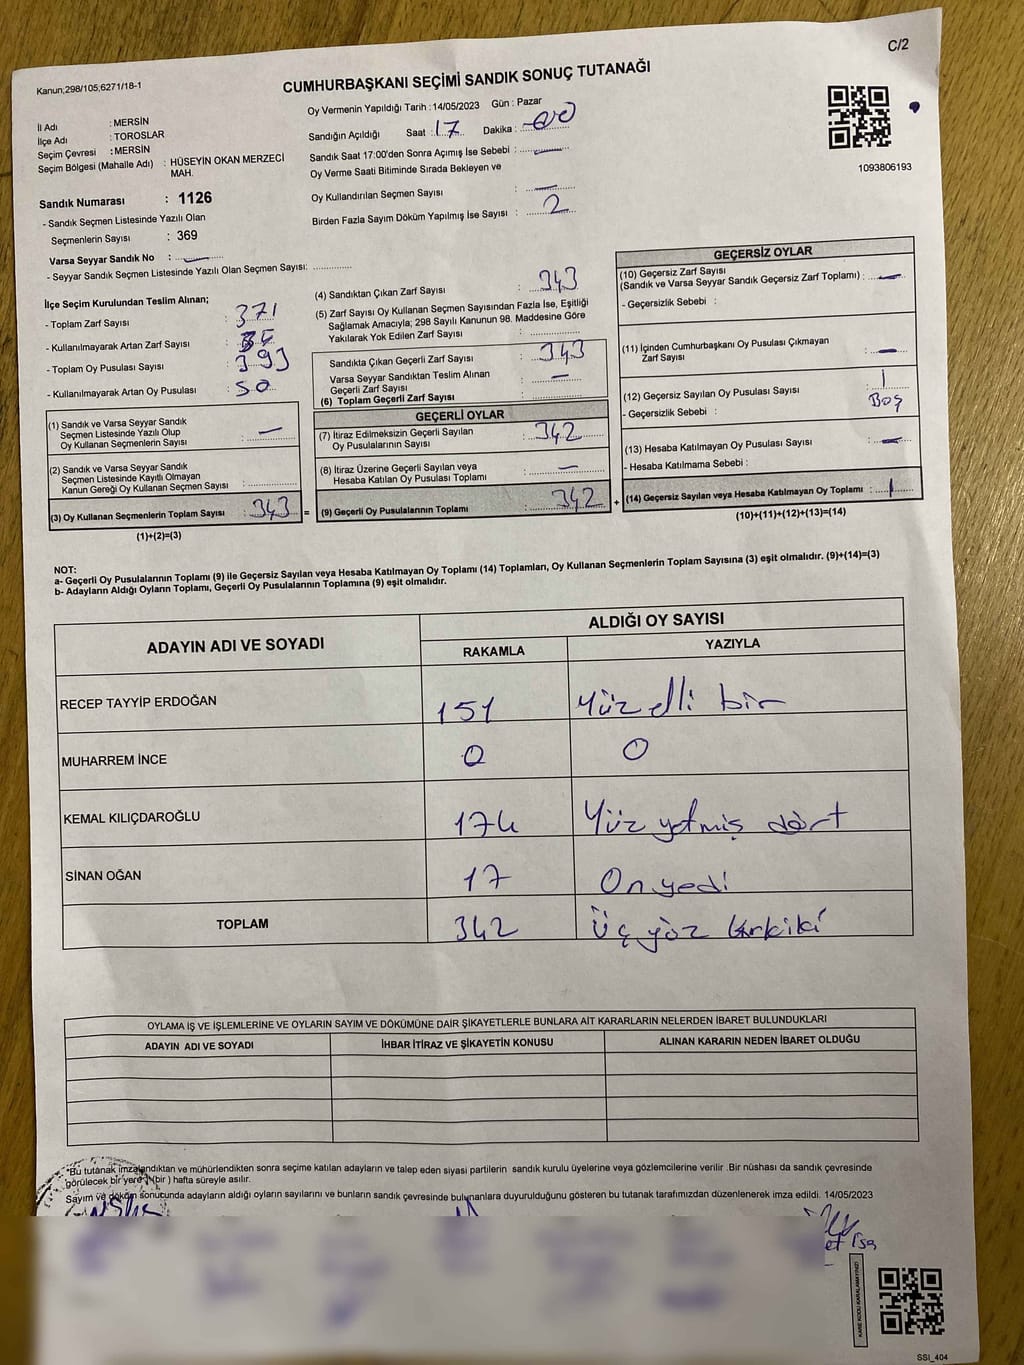 C/2
Kanun;298/105;6271/18-1
CUMHURBAŞKANI SEÇİMİ SANDIK SONUÇ TUTANAĞI
İl Adı : MERSİN
İlçe Adı : TOROSLAR
Seçim Çevresi : MERSİN
Seçim Bölgesi (Mahalle Adı) : HÜSEYİN OKAN MERZECİ
MAH.
Sandık Numarası : 1126
- Sandık Seçmen Listesinde Yazılı Olan
Seçmenlerin Sayısı : 369
Varsa Seyyar Sandık No :
- Seyyar Sandık Seçmen Listesinde Yazılı Olan Seçmen Sayısı:
Oy Vermenin Yapıldığı Tarih :14/05/2023 Gün : Pazar
Sandığın Açıldığı Saat : 17 Dakika : 00
Sandık Saat 17:00'den Sonra Açımış İse Sebebi : —
Oy Verme Saati Bitiminde Sırada Bekleyen ve
Oy Kullandırılan Seçmen Sayısı : —
Birden Fazla Sayım Döküm Yapılmış İse Sayısı : 2
1093806193
İlçe Seçim Kurulundan Teslim Alınan;
- Toplam Zarf Sayısı : 371
- Kullanılmayarak Artan Zarf Sayısı :
- Toplam Oy Pusulası Sayısı : 393
- Kullanılmayarak Artan Oy Pusulası : 50
(1) Sandık ve Varsa Seyyar Sandık
Seçmen Listesinde Yazılı Olup
Oy Kullanan Seçmenlerin Sayısı : —
(2) Sandık ve Varsa Seyyar Sandık
Seçmen Listesinde Kayıtlı Olmayan
Kanun Gereği Oy Kullanan Seçmen Sayısı :
(3) Oy Kullanan Seçmenlerin Toplam Sayısı : 343 =
(1)+(2)=(3)
(4) Sandıktan Çıkan Zarf Sayısı : 343
(5) Zarf Sayısı Oy Kullanan Seçmen Sayısından Fazla İse, Eşitliği
Sağlamak Amacıyla; 298 Sayılı Kanunun 98. Maddesine Göre
Yakılarak Yok Edilen Zarf Sayısı :
Sandıkta Çıkan Geçerli Zarf Sayısı : 343
Varsa Seyyar Sandıktan Teslim Alınan
Geçerli Zarf Sayısı : —
(6) Toplam Geçerli Zarf Sayısı :
GEÇERLİ OYLAR
(7) İtiraz Edilmeksizin Geçerli Sayılan
Oy Pusulalarının Sayısı : 342
(8) İtiraz Üzerine Geçerli Sayılan veya
Hesaba Katılan Oy Pusulası Toplamı : —
(9) Geçerli Oy Pusulalarının Toplamı : 342 +
GEÇERSİZ OYLAR
(10) Geçersiz Zarf Sayısı
(Sandık ve Varsa Seyyar Sandık Geçersiz Zarf Toplamı) : —
- Geçersizlik Sebebi :
(11) İçinden Cumhurbaşkanı Oy Pusulası Çıkmayan
Zarf Sayısı : —
(12) Geçersiz Sayılan Oy Pusulası Sayısı : 1
- Geçersizlik Sebebi : BOŞ
(13) Hesaba Katılmayan Oy Pusulası Sayısı : —
- Hesaba Katılmama Sebebi :
(14) Geçersiz Sayılan veya Hesaba Katılmayan Oy Toplamı : 1
(10)+(11)+(12)+(13)=(14)
NOT:
a- Geçerli Oy Pusulalarının Toplamı (9) ile Geçersiz Sayılan veya Hesaba Katılmayan Oy Toplamı (14) Toplamları, Oy Kullanan Seçmenlerin Toplam Sayısına (3) eşit olmalıdır. (9)+(14)=(3)
b- Adayların Aldığı Oyların Toplamı, Geçerli Oy Pusulalarının Toplamına (9) eşit olmalıdır.
ADAYIN ADI VE SOYADI ALDIĞI OY SAYISI
RAKAMLA YAZIYLA
RECEP TAYYİP ERDOĞAN 151 Yüz elli bir
MUHARREM İNCE 0 0
KEMAL KILIÇDAROĞLU 174 Yüz yetmiş dört
SİNAN OĞAN 17 On yedi
TOPLAM 342 Üç yüz kırkiki
OYLAMA İŞ VE İŞLEMLERİNE VE OYLARIN SAYIM VE DÖKÜMÜNE DAİR ŞİKAYETLERLE BUNLARA AİT KARARLARIN NELERDEN İBARET BULUNDUKLARI
ADAYIN ADI VE SOYADI İHBAR İTİRAZ VE ŞİKAYETİN KONUSU ALINAN KARARIN NEDEN İBARET OLDUĞU
"Bu tutanak imzalandıktan ve mühürlendikten sonra seçime katılan adayların ve talep eden siyasi partilerin sandık kurulu üyelerine veya gözlemcilerine verilir .Bir nüshası da sandık çevresinde
görülecek bir yere 1 (bir ) hafta süreyle asılır.
Sayım ve döküm sonucunda adayların aldığı oyların sayılarını ve bunların sandık çevresinde bulunanlara duyurulduğunu gösteren bu tutanak tarafımızdan düzenlenerek imza edildi. 14/05/2023
KARE KODU KARALAMAYINIZ!
SSI_404